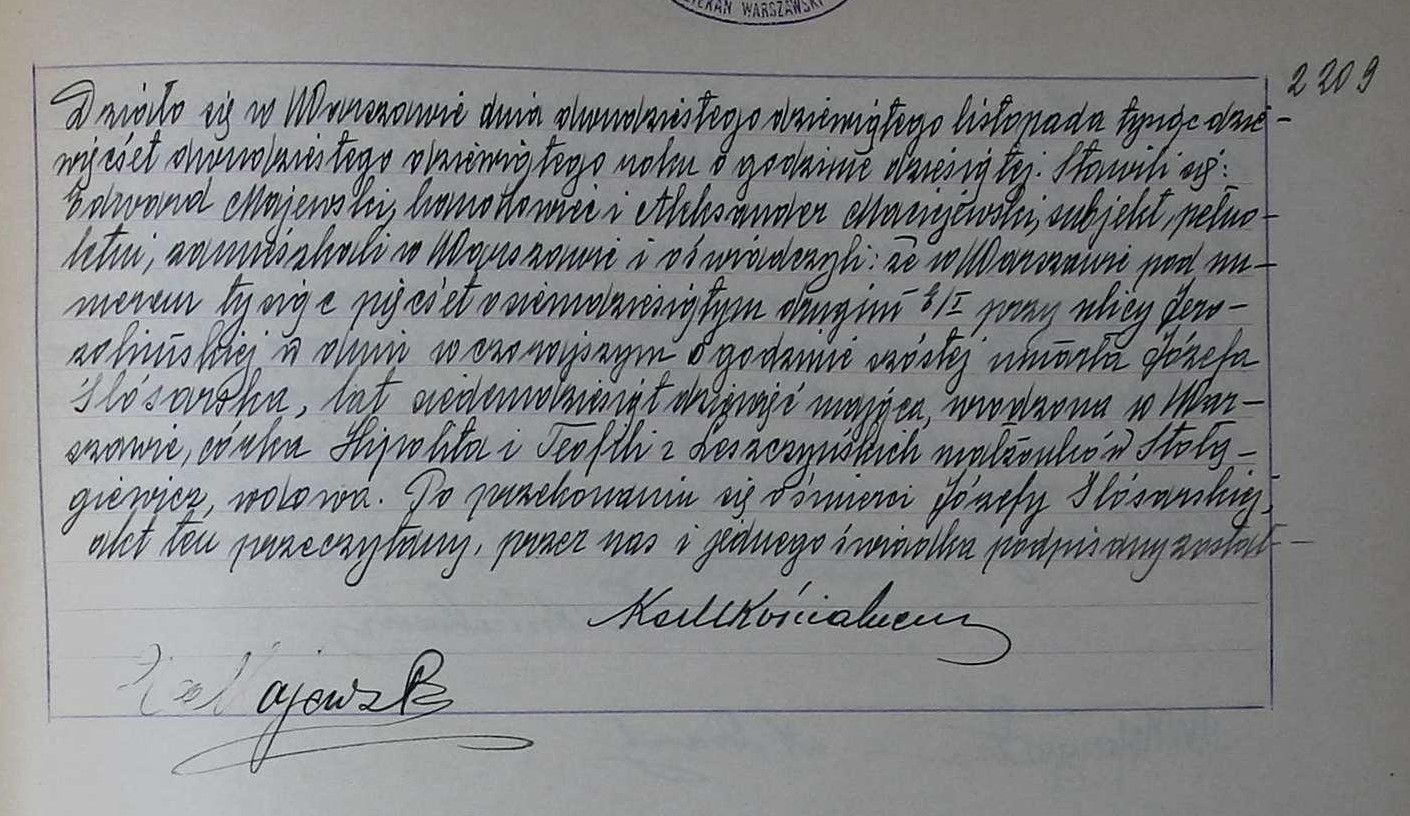 TERAN WARSZAWSKI
2209
Działo się w Warszawie dnia dwudziestego dziewiątego listopada tysiąc dzie-
więćset dwudziestego dziewiątego roku o godzinie dziesiątej. Stawili się:
Edward Majewski, kanotowiec i Aleksander Maciejewski, subjekt, pełno-
letni, zamieszkali w Warszawie i oświadczyli: że w Warszawie pod nu-
merem tysiąc pięćset osiemdziesiątym drugim E/I przy ulicy Jero-
zolimskiej w dniu wczorajszym o godzinie szóstej umarła Józefa
Ślósarska, lat siedemdziesiąt dziewięć mająca, urodzona w War-
szawie, córka Hipolita i Teofili z Leszczyńskich małżonków Stoły-
giewicz, wdowa. Po przekonaniu się o śmierci Józefy Ślósarskiej,
akt ten przeczytany, przez nas i jednego świadka podpisany został
Majewski